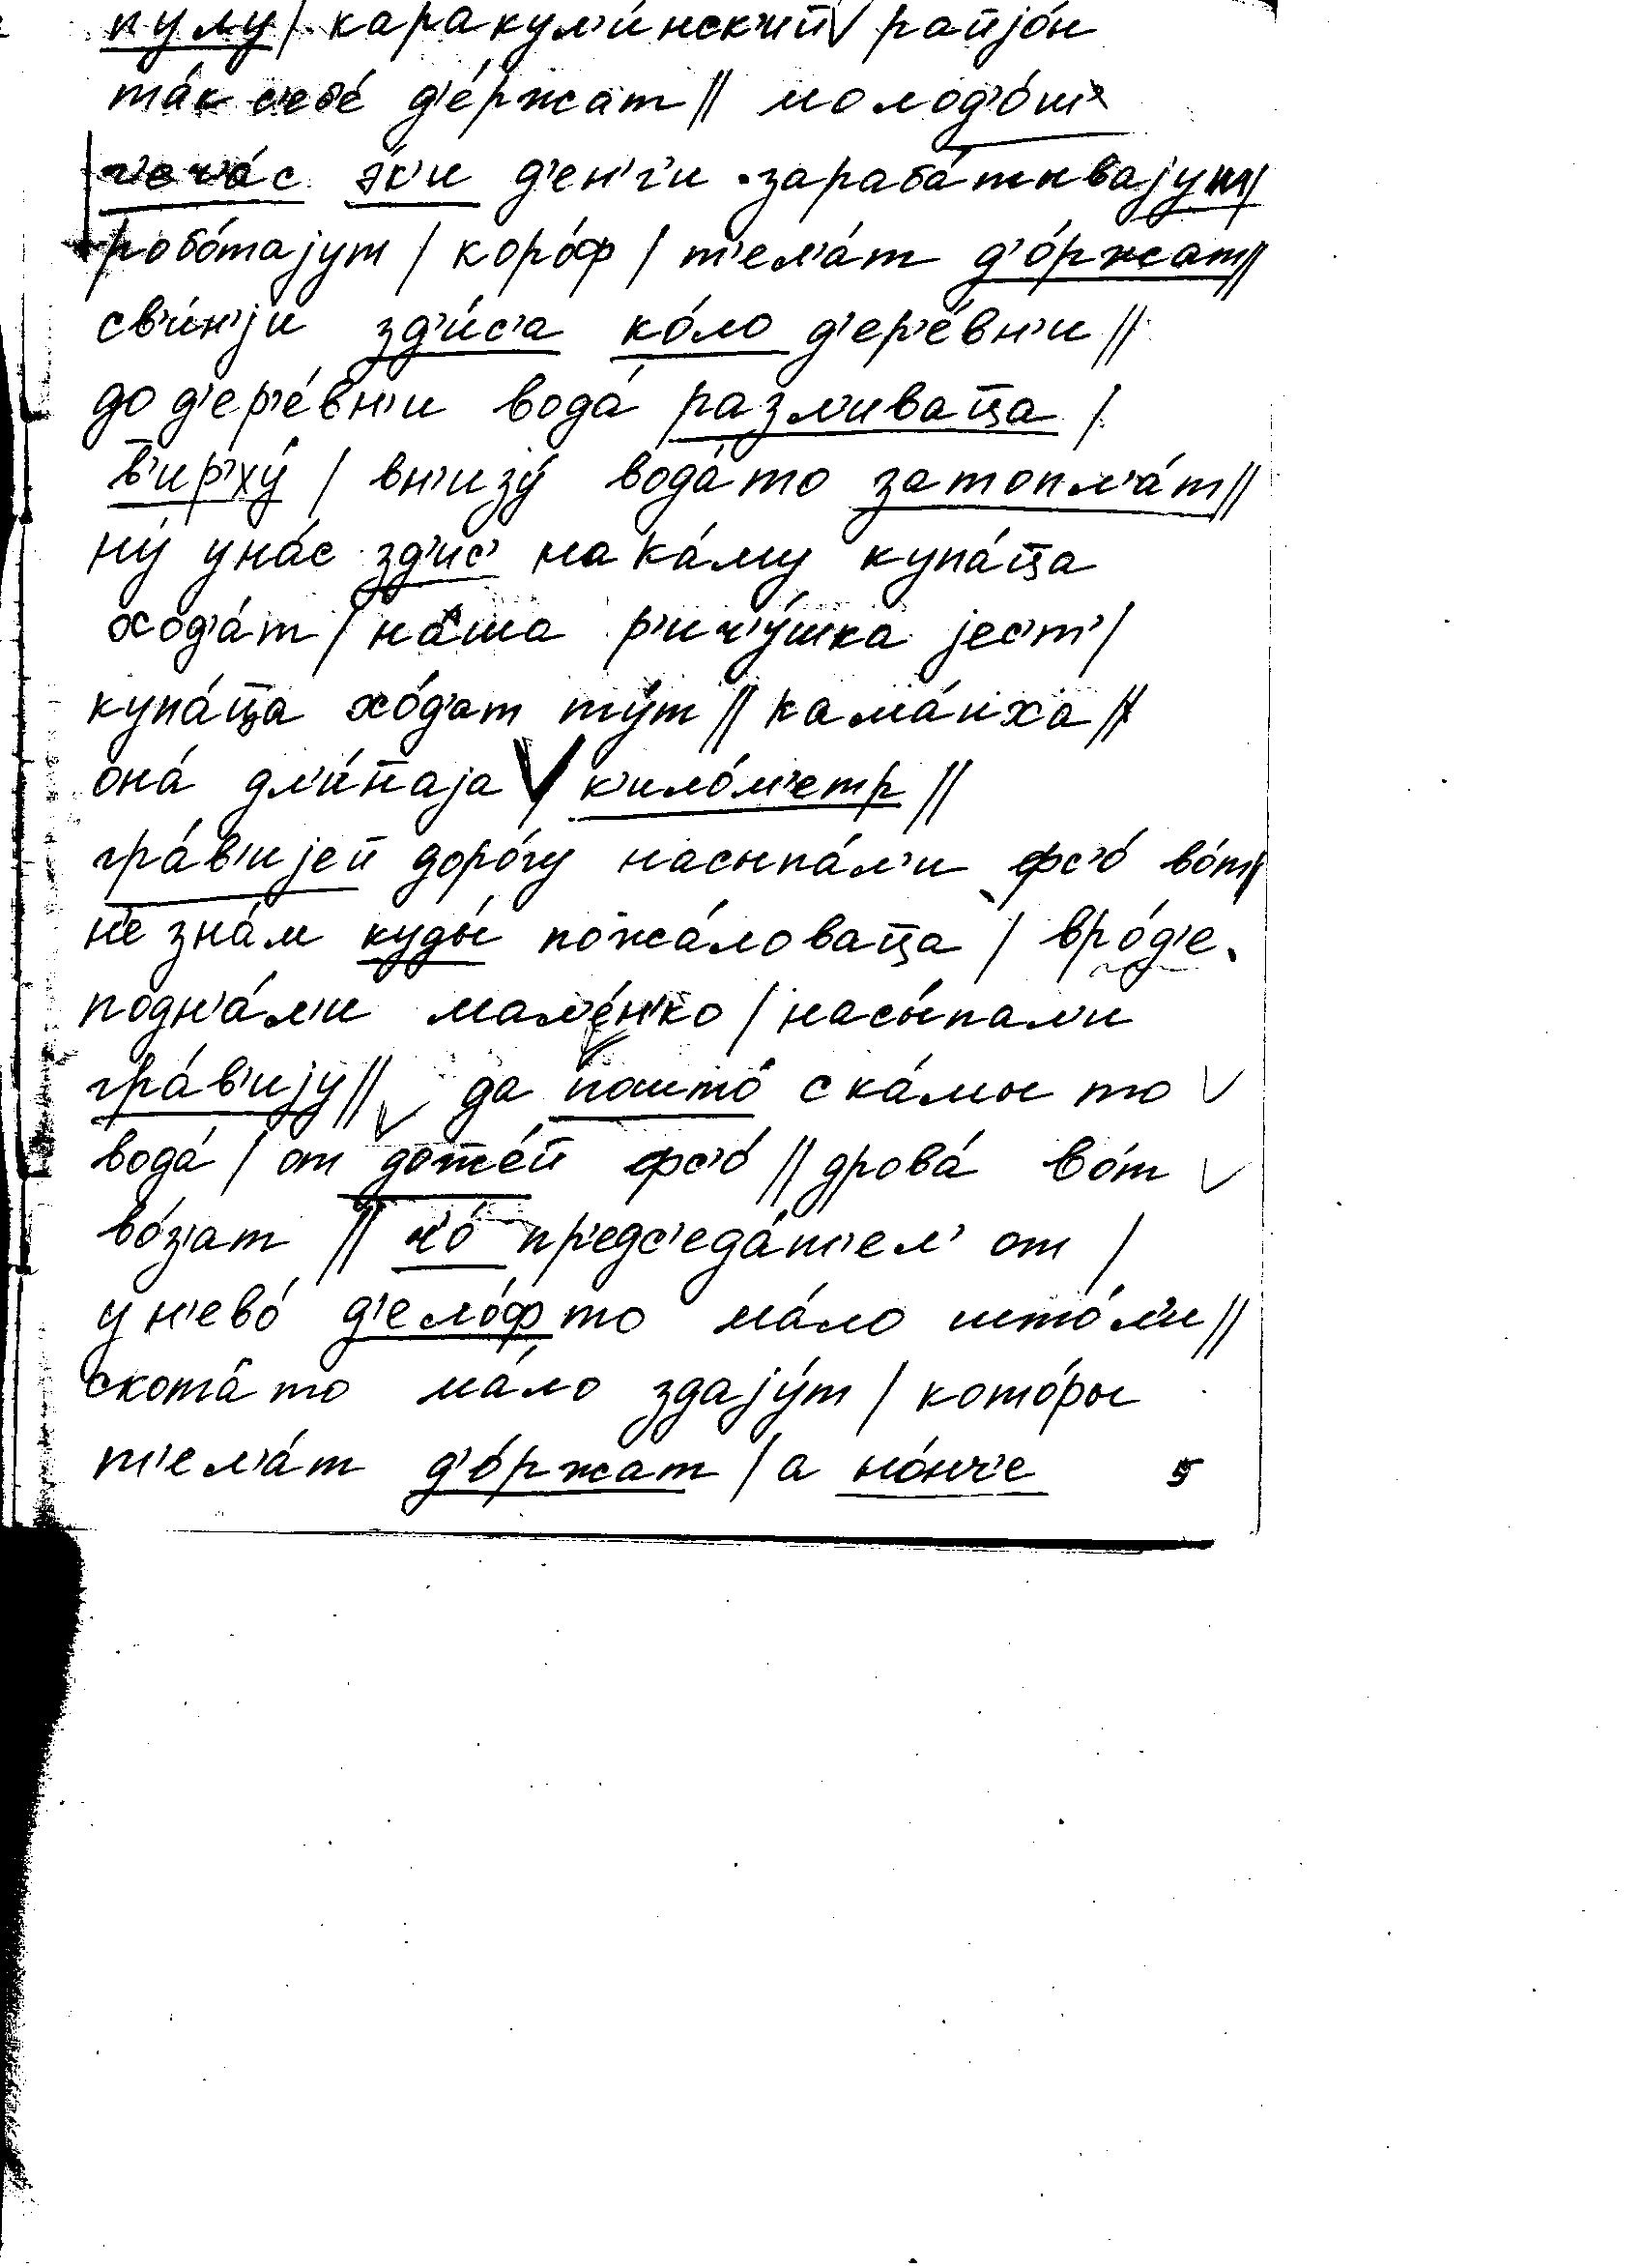 кулу / каракул'и́нск'ий рапjо́н
та́к с'еб'е́ д'е́ржат // молод'о́ш
с'еч'а́с э́к'и д'ен'г'и зараба́тывајут /
робо́тајут / коро́ф / т'ел'а́т д'о́ржат //
св'и́н'ји зд'и́с'а ко́ло д'ер'е́вн'и //
до д'ер'е́вн'и вода́ разл'иваȳца /
в'ир'ху́ / вн'изу́ вода́ то затопл'а́т //
ну́ уна́с зд'ис' на ка́му купа́ȳца
ход'а́т / на́ша р'ич'у́шка јес'т' /
купа́ȳца хо́д'ат ту́т // кама́иха //
она́ дл'и́н̄аја / к'ило́м'етр //
гра́в'ијей доро́гу насыпа́л'и фс'о́ во́т /
н'е зна́м куды́ пожа́ловаȳца / вро́д'е
подн'а́л'и мал'е́н'ко / насы́пал'и
гра́в'ију // да пошто́ с ка́мы то
вода́ / от дож̄е́й фс'о́ // дрова́ во́т
во́з'ат // ч'о́ пр'едс'еда́т'ел' от /
у н'ево́ д'ело́ф то ма́ло што́ л'и //
скота́ то ма́ло здају́т / кото́ры
т'ел'а́т д'о́ржат / а но́нч'е 5